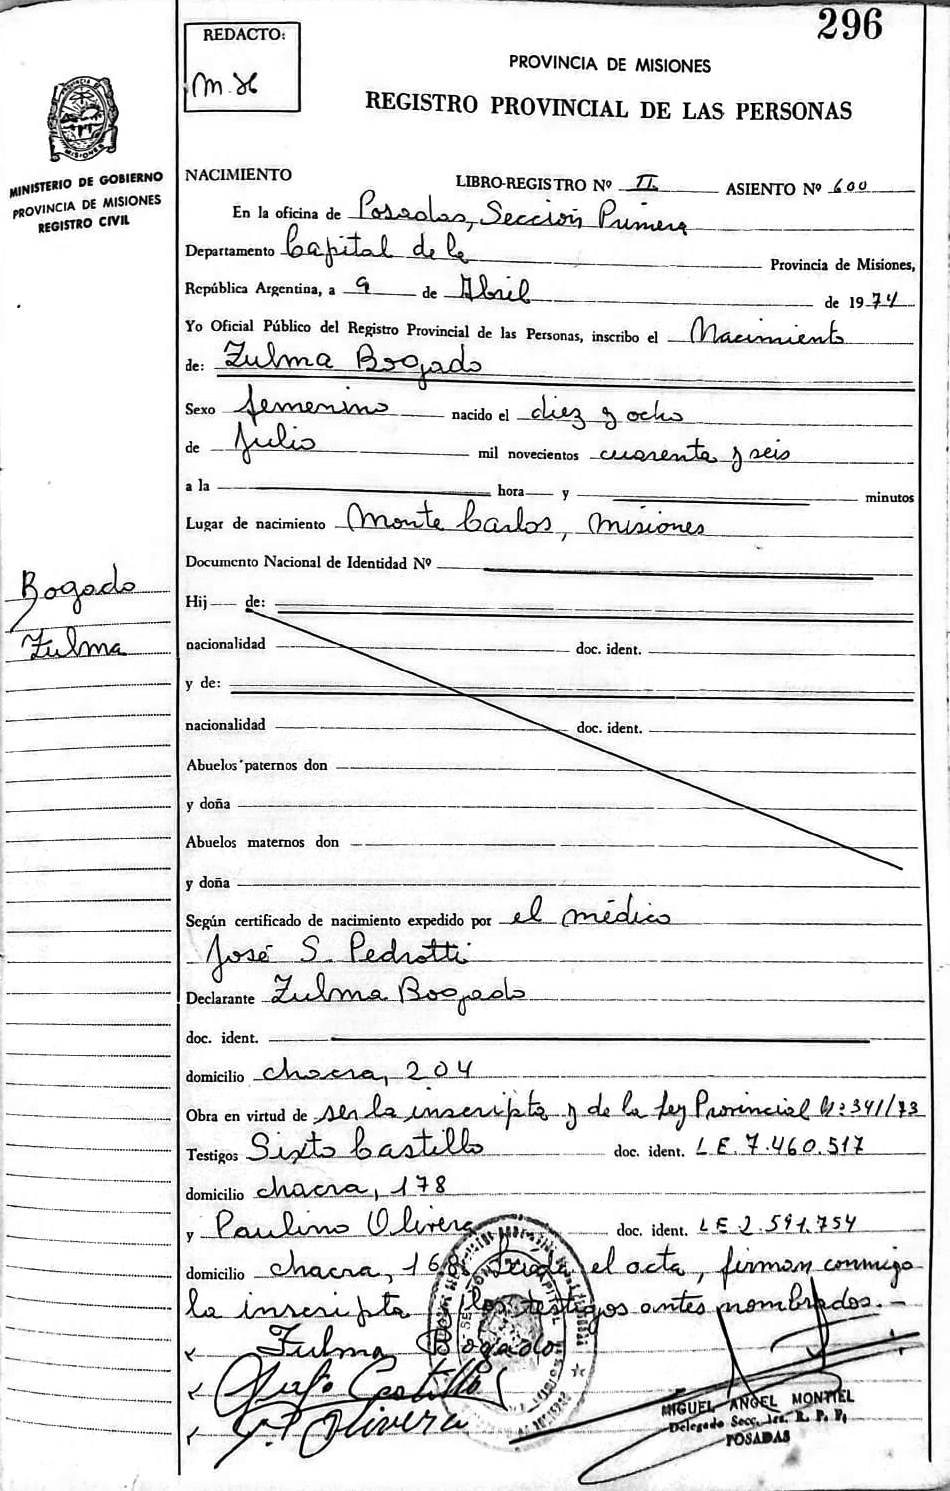 296
REDACTO:
PROVINCIA DE MISIONES
REGISTRO PROVINCIAL DE LAS PERSONAS
MINISTERIO DE GOBIERNO
PROVINCIA DE MISIONES
REGISTRO CIVIL
NACIMIENTO LIBRO-REGISTRO Nº II ASIENTO Nº 600
En la oficina de Posadas, Sección Primera
Departamento Capital de la Provincia de Misiones,
República Argentina, a 9 de Abril de 1974
Yo Oficial Público del Registro Provincial de las Personas, inscribo el Nacimiento
de: Zulma Bogado
Sexo femenino nacido el diez y ocho
de Julio mil novecientos cuarenta y seis
a la hora y minutos
Lugar de nacimiento Monte Carlos, Misiones
Documento Nacional de Identidad Nº
Bogado
Zulma
Hij de:
nacionalidad doc. ident.
y de:
nacionalidad doc. ident.
Abuelos paternos don
y doña
Abuelos maternos don
y doña
Según certificado de nacimiento expedido por el médico
José S. Pedrotti
Declarante Zulma Bogado
doc. ident.
domicilio chacra, 204
Obra en virtud de ser la inscripta y de la Ley Provincial Nº 341/73
Testigos Sixto Castillo doc. ident. L E. 7.460.517
domicilio chacra, 178
y Paulino Olivera doc. ident. L E 2.591.754
domicilio chacra, 168 Leída el acta, firman conmigo
la inscripta y los testigos antes nombrados.-
Zulma Bogado
Castillo
P. Olivera
MIGUEL ANGEL MONTIEL
Delegado Secc. 1ra. R. P. P.
POSADAS